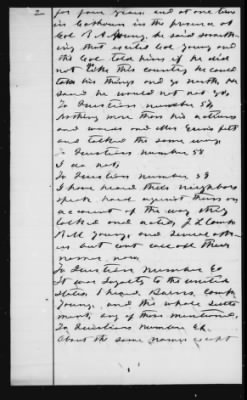 2
for four years and at one time
in Calhoun in the presence of
Col R. A. Young, he said something
that excited Col Young and
the Col told him if he did
not like this country he could
take his things and go north. He
said he would not go.
To Question number 56
Nothing more than his actions
and words and other Grains felt
and talked the same way.
To Question number 58
I do not,
To Question number 59
I have heard their neighbors
speak hard against them on
account of the way they
talked and acted, J L Camp
R. M. Young, and several others
but cant call all their
names now.
To Question number 60
It was loyalty to the united
States I heard Barns, Camp
Young, and the whole settlement
say of those mentioned.
To Question number 62
about the same names except